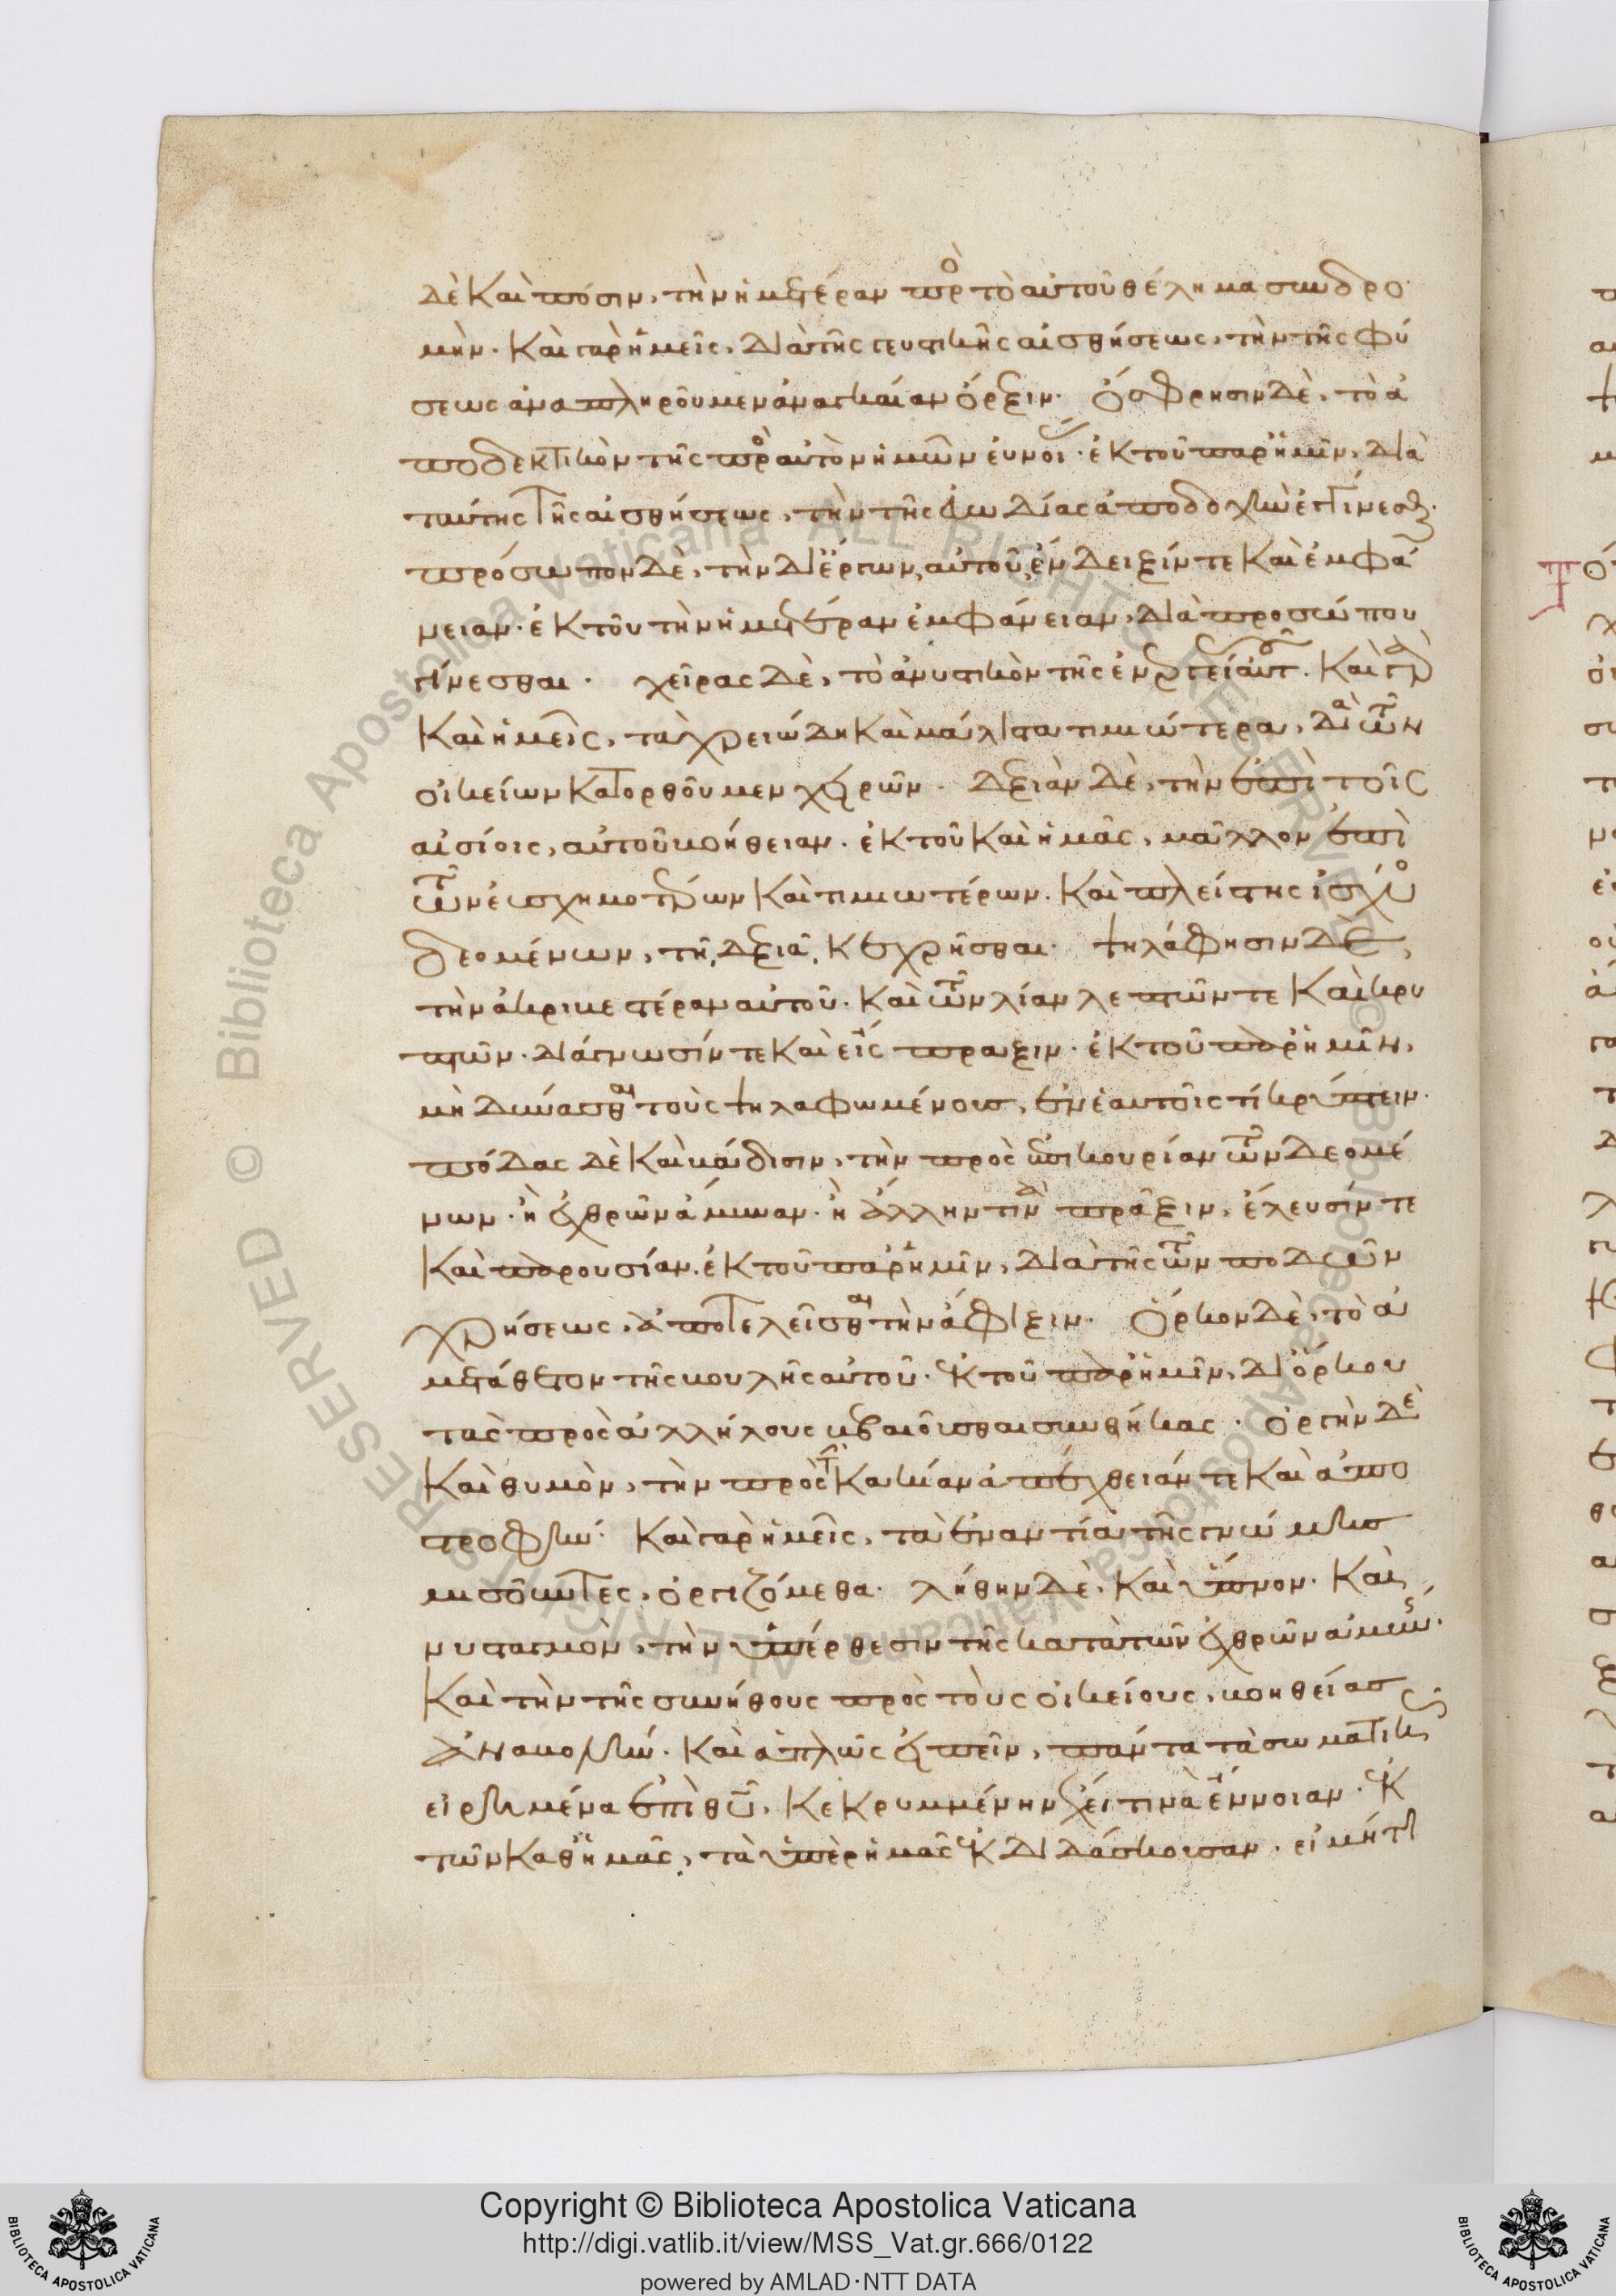 δὲ καὶ πόσιν, τὴν ἡμετέραν πρὸς τὸ αὐτοῦ θέλημα συνδρο
μήν. καὶ γὰρ ἡμεῖς, διὰ τῆς γευστικῆς αἰσθήσεως, τὴν τῆς φύ
σεως ἀναπληροῦμεν ἀναγκαίαν ὄρεξιν. ὄσφρησιν δὲ, τὸ ἀ
ποδεκτικὸν τῆς πρὸς αὐτὸν ἡμῶν ἐννοίας. ἐκ τοῦ παρ' ἡμῖν, διὰ
ταύτης τῆς αἰσθήσεως, τὴν τῆς εὐωδίας ἀποδοχὴν ἐγγίνεσθαι.
πρόσωπον δὲ, τὴν δι' ἔργων αὐτοῦ ἔνδειξίν τε καὶ ἐμφά
νειαν. ἐκ τοῦ τὴν ἡμετέραν ἐμφάνειαν, διὰ προσώπου
γίνεσθαι. χεῖρας δὲ, τὸ ἀνυστικὸν τῆς ἐνεργείας αὐτοῦ. καὶ γὰρ
καὶ ἡμεῖς, τὰ χρειώδη καὶ μάλιστα τιμιώτερα, διὰ τῶν
οἰκείων κατορθοῦμεν χειρῶν. δεξιὰν δὲ, τὴν ἐπὶ τοῖς
αἰσίοις, αὐτοῦ βοήθειαν. ἐκ τοῦ καὶ ἡμᾶς, μᾶλλον ἐπὶ
τῶν εὐσχημοτέρων καὶ τιμιωτέρων. καὶ πλείστης ἰσχύος
δεομένων, τῇ δεξιᾷ κεχρῆσθαι. ψηλάφησιν δὲ,
τὴν ἀκριβεστέραν αὐτοῦ. καὶ τῶν λίαν λεπτῶν τε καὶ κρυ
πτῶν. διάγνωσίν τε καὶ εἴσπραξιν. ἐκ τοῦ παρ' ἡμῖν,
μὴ δύνασθαι τοὺς ψηλαφωμένους, ἐν ἑαυτοῖς τί κρύπτειν.
πόδας δὲ καὶ βάδισιν, τὴν πρὸς ἐπικουρίαν τῶν δεομέ
νων. ἢ ἐχθρῶν ἄμυναν. ἢ ἄλλην τινὰ πρᾶξιν, ἔλευσίν τε
καὶ παρουσίαν. ἐκ τοῦ παρ' ἡμῖν, διὰ τῆς τῶν ποδῶν
χρήσεως, ἀποτελεῖσθαι τὴν ἄφιξιν. ὅρκον δὲ, τὸ ἀ
μετάθετον τῆς βουλῆς αὐτοῦ. ἐκ τοῦ παρ' ἡμῖν, δι' ὅρκου
τὰς πρὸς ἀλλήλους βεβαιοῦσθαι συνθήκας. ὀργὴν δὲ
καὶ θυμὸν, τὴν πρὸς τὴν κακίαν ἀπέχθειάν τε καὶ ἀπο
στροφήν. καὶ γὰρ ἡμεῖς, τὰ ἐναντία τῆς γνώμης
μισοῦντες, ὀργιζόμεθα. λήθην δὲ, καὶ ὕπνον. καὶ
νυσταγμὸν, τὴν ὑπέρθεσιν τῆς κατὰ τῶν ἐχθρῶν ἀμύνης.
καὶ τὴν τῆς συνήθους πρὸς τοὺς οἰκείους, βοηθείας
ἀναβολήν. καὶ ἁπλῶς εἰπεῖν, πάντα τὰ σωματικῶς
εἰρημένα ἐπὶ θεοῦ, κεκρυμμένην ἔχει τινὰ ἔννοιαν. ἐκ
τῶν καθ' ἡμᾶς, τὰ ὑπὲρ ἡμᾶς ἐκδιδάσκουσαν. εἰ μή τι
Copyright © Biblioteca Apostolica Vaticana
http://digi.vatlib.it/view/MSS_Vat.gr.666/0122
powered by AMLAD·NTT DATA